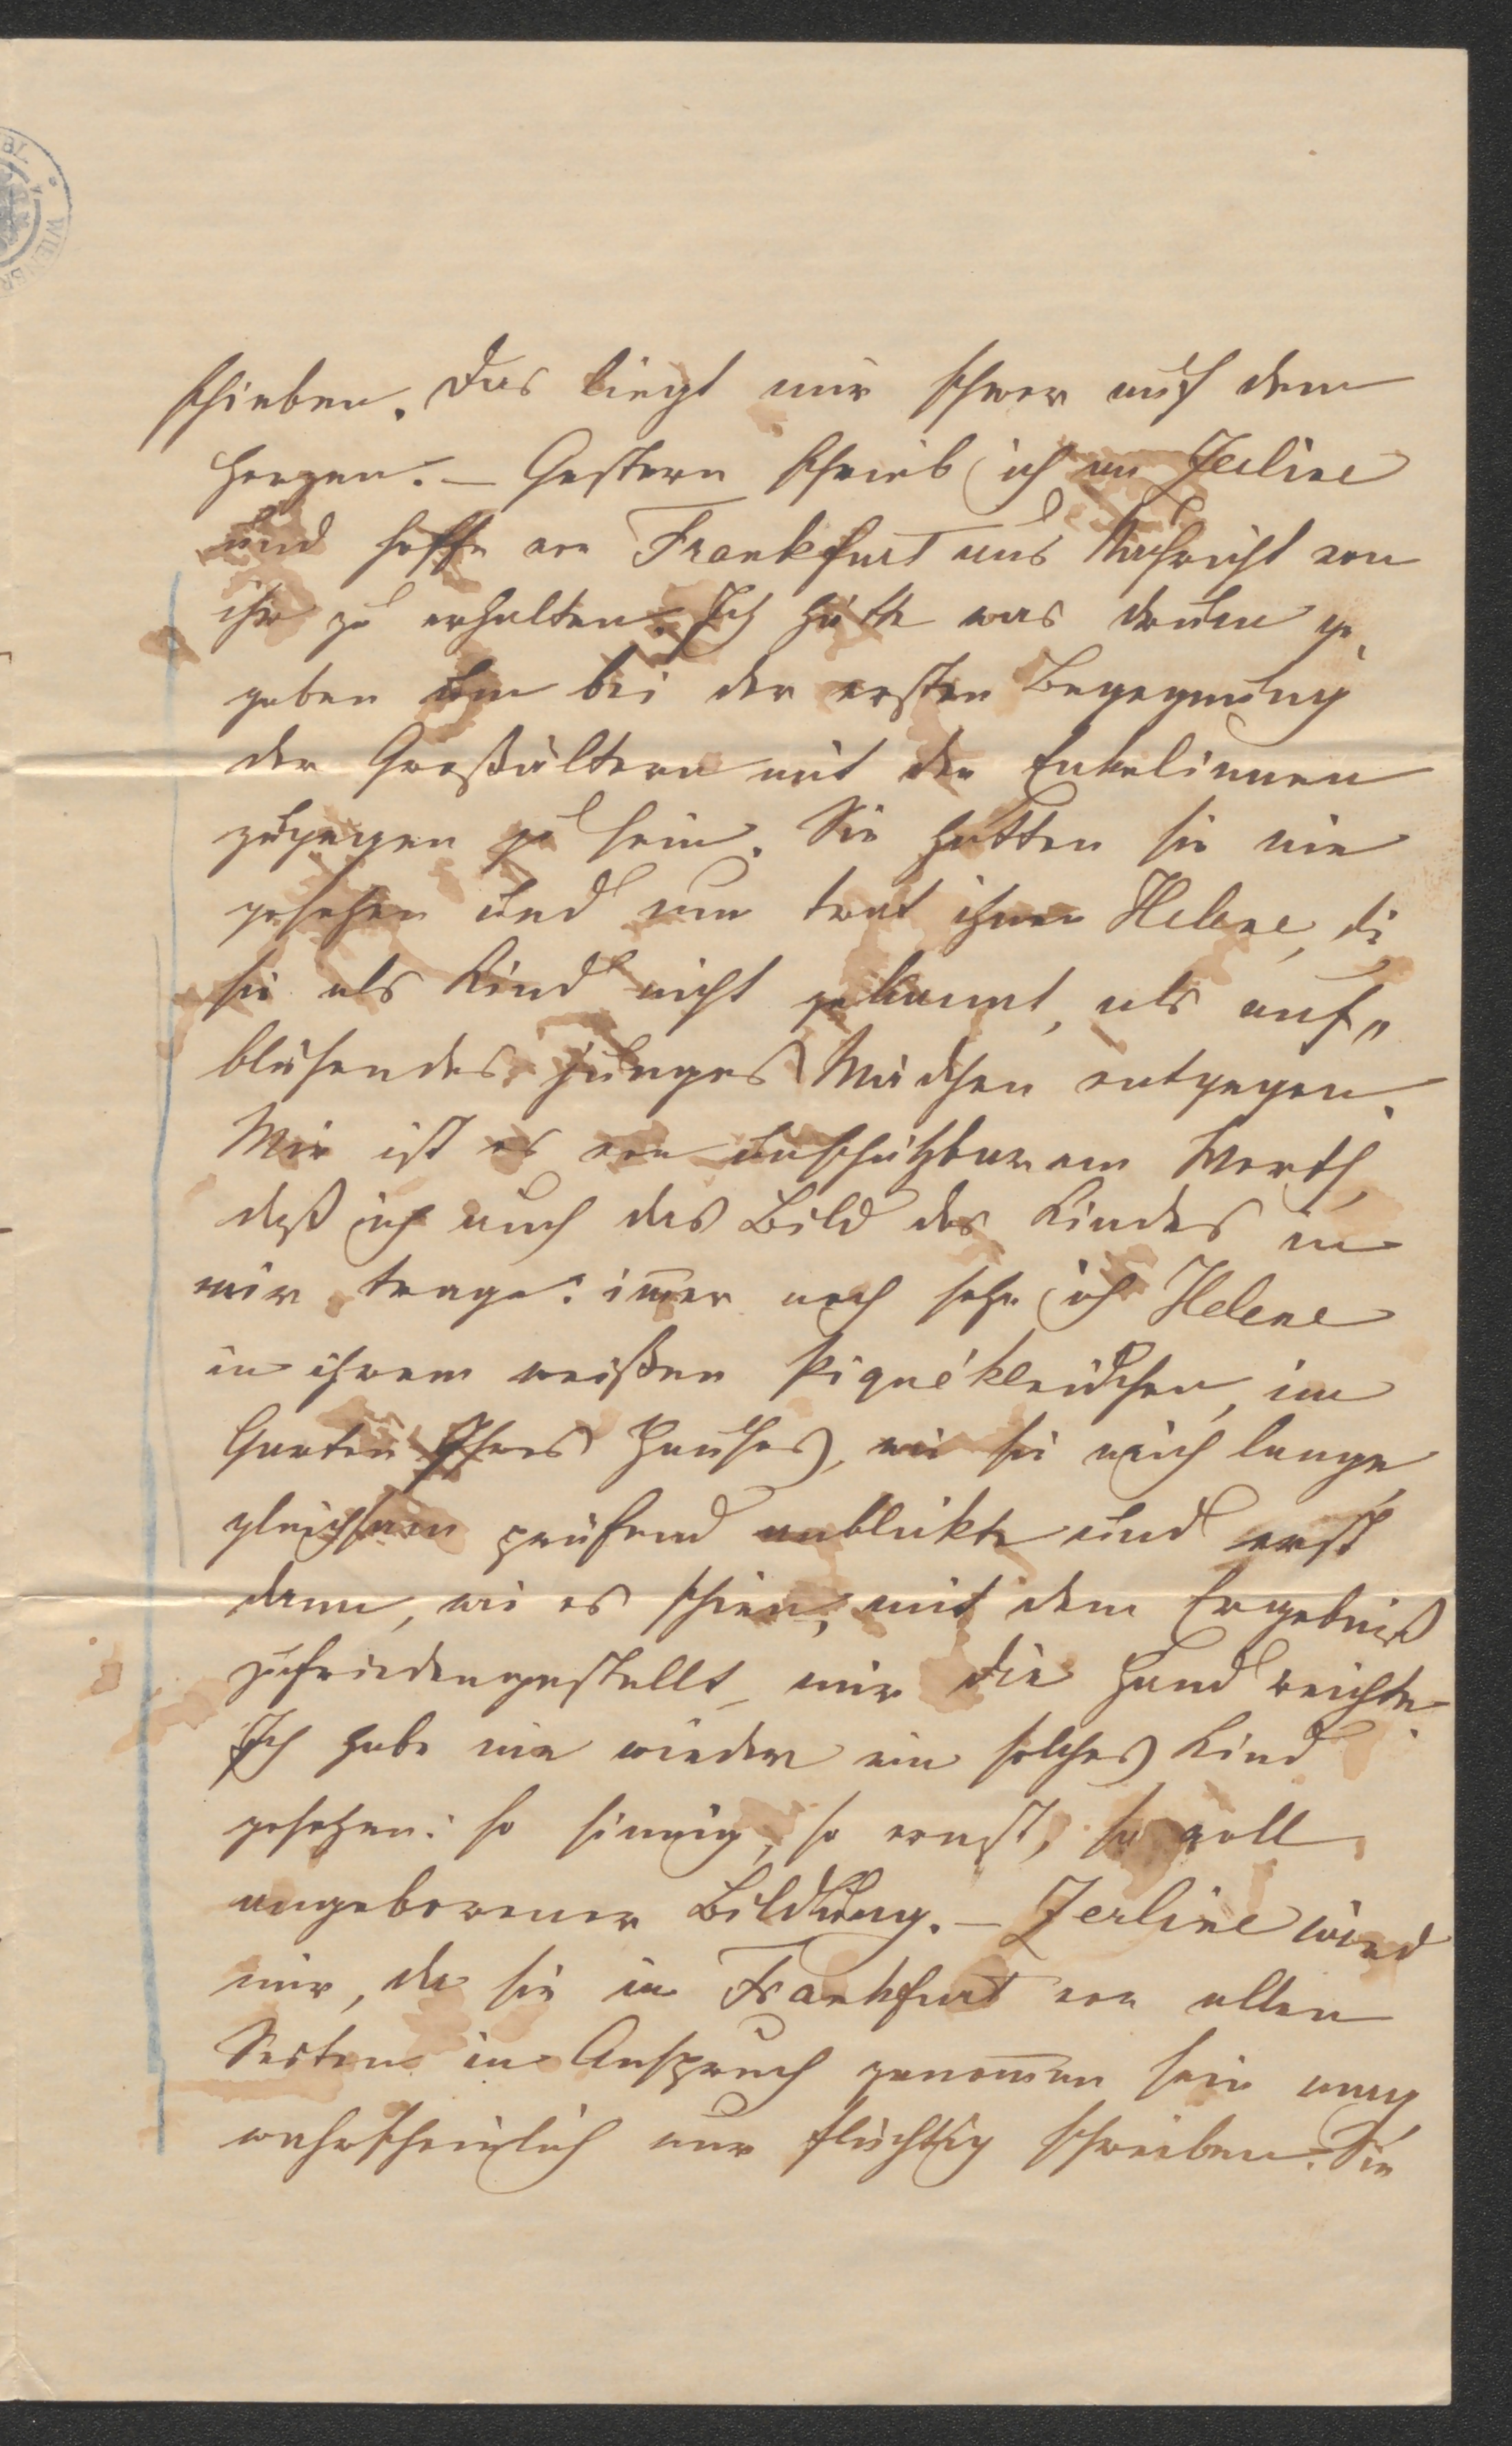 BL.
WIENBR
schieben. Das liegt mir schwer auf dem
Herzen. – Gestern schrieb ich an Zerline
und hoffe von Frankfurt aus Nachricht von
ihr zu erhalten. Ich hätte was drum ge-
geben um bei der ersten Begegnung
der Großältern mit den Enkelinnen
zugegen zu sein. Sie hatten sie nie
gesehen und nun trat ihnen Helene, die
sie als Kind nicht gekannt, als auf„
blühendes junges Mädchen entgegen.
Mir ist es von unschätzbarem Werth,
daß ich auch das Bild des Kindes in
mir trage: im̅er noch sehe ich Helene
in ihrem weißen Piquékleidchen, im
Garten Ihres Hauses, wie sie mich lange
gleichsam prüfend anblickte und erst
dann, wie es schien, mit dem Ergebniß
zufriedengestellt, mir die Hand reichte.
Ich habe nie wieder ein solches Kind
gesehen: so sinnig, so ernst, so voll
angeborener Bildung. – Zerline wird
mir, da sie in Frankfurt von allen
Seiten in Anspruch genom̅en sein mag
wahrscheinlich nur flüchtig schreiben. Sie